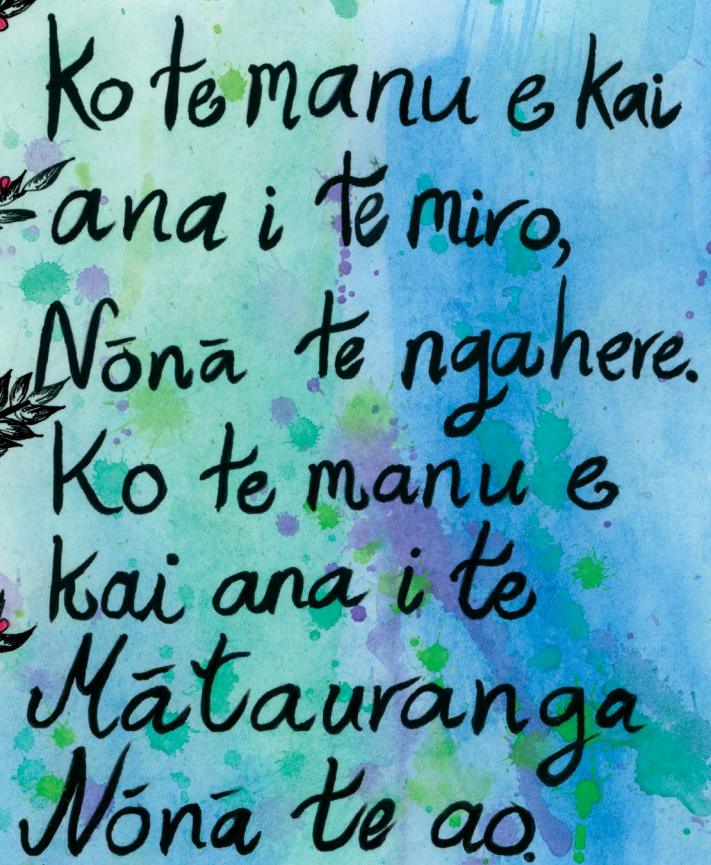 Ko te manu e kai
ana i te miro,
Nōnā te ngahere.
Ko te manu e
kai ana i te
Mātauranga
Nōnā te ao.